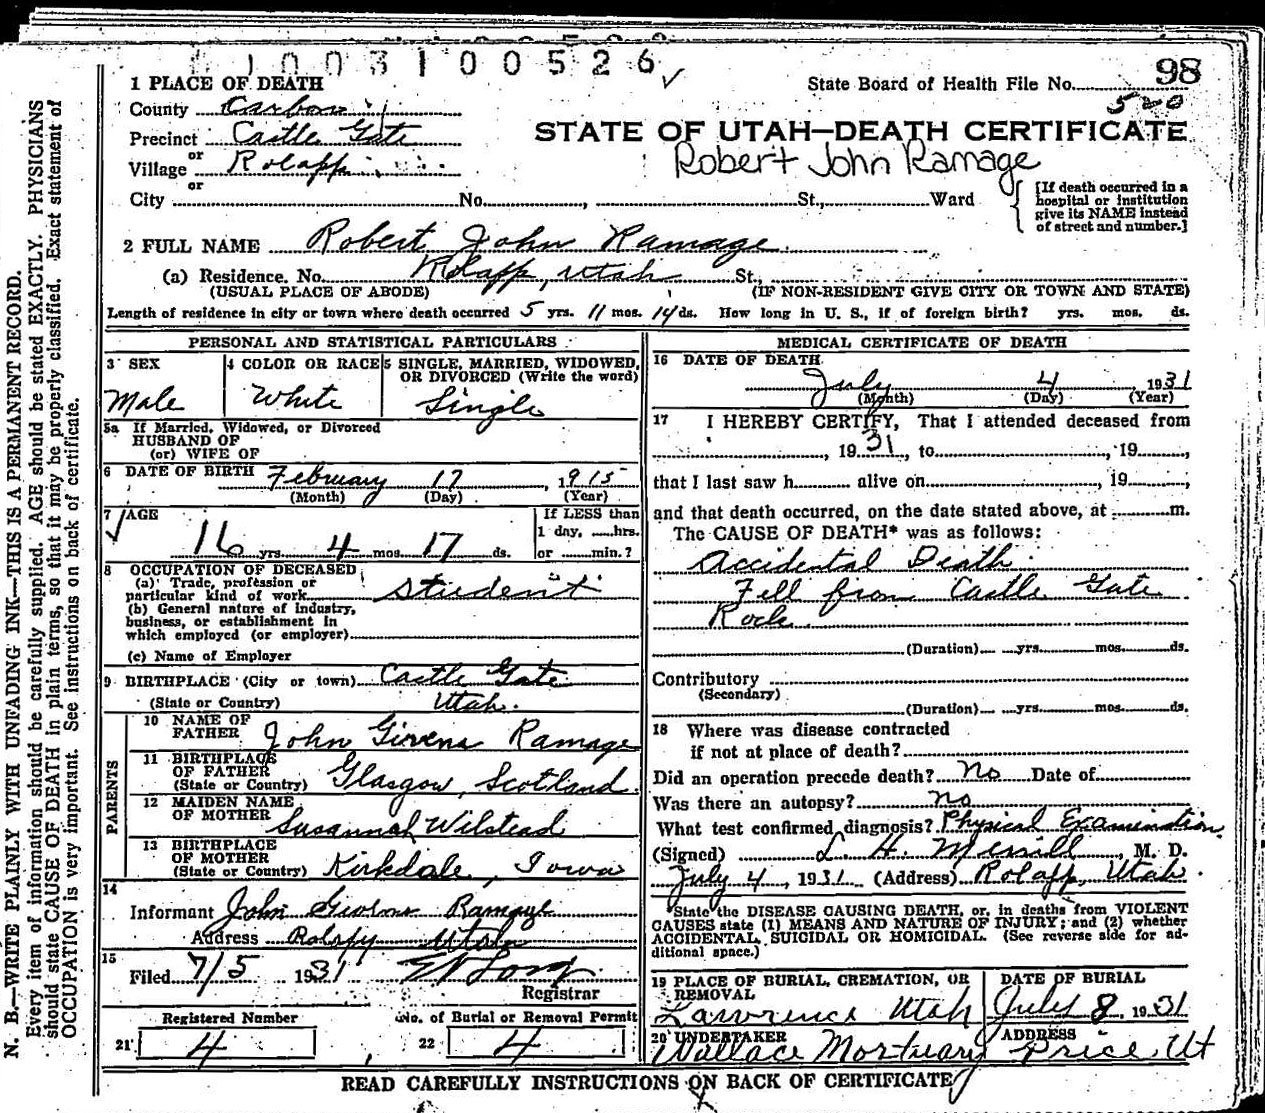 1003100526
98
1 PLACE OF DEATH
State Board of Health File No.
520
County Carbon
Precinct Castle Gate
STATE OF UTAH—DEATH CERTIFICATE
or
Village Rolapp
Robert John Ramage
or
City No. , St., Ward
[If death occurred in a hospital or institution give its NAME instead of street and number.]
2 FULL NAME Robert John Ramage
(a) Residence. No. Rolapp, Utah St.,
(USUAL PLACE OF ABODE) (IF NON-RESIDENT GIVE CITY OR TOWN AND STATE)
Length of residence in city or town where death occurred 5 yrs. 11 mos. 14 ds. How long in U. S., if of foreign birth? yrs. mos. ds.
PERSONAL AND STATISTICAL PARTICULARS
3 SEX
Male
4 COLOR OR RACE
White
5 SINGLE, MARRIED, WIDOWED,
OR DIVORCED (Write the word)
Single
5a If Married, Widowed, or Divorced
HUSBAND OF
(or) WIFE OF
6 DATE OF BIRTH February 17, 1915
(Month) (Day) (Year)
7 AGE
16 yrs. 4 mos. 17 ds.
If LESS than
1 day, hrs.
or min.?
8 OCCUPATION OF DECEASED
(a) Trade, profession or
particular kind of work student
(b) General nature of industry,
business, or establishment in
which employed (or employer)
(c) Name of Employer
9 BIRTHPLACE (City or town) Castle Gate
(State or Country) Utah.
PARENTS
10 NAME OF
FATHER John Givens Ramage
11 BIRTHPLACE
OF FATHER
(State or Country) Glasgow, Scotland.
12 MAIDEN NAME
OF MOTHER Susannah Wilstead
13 BIRTHPLACE
OF MOTHER
(State or Country) Kirkdale, Iowa
14
Informant John Givens Ramage
Address Rolapp Utah
15
Filed 7/5 1931
Registrar
Registered Number
21 4
No. of Burial or Removal Permit
22 4
MEDICAL CERTIFICATE OF DEATH
16 DATE OF DEATH
July 4, 1931
(Month) (Day) (Year)
17 I HEREBY CERTIFY, That I attended deceased from
, 1931, to , 19 ,
that I last saw h alive on , 19 ,
and that death occurred, on the date stated above, at m.
The CAUSE OF DEATH* was as follows:
Accidental Death
Fell from Castle Gate
Rock.
(Duration) yrs. mos. ds.
Contributory
(Secondary)
(Duration) yrs. mos. ds.
18 Where was disease contracted
if not at place of death?
Did an operation precede death? No Date of
Was there an autopsy? no
What test confirmed diagnosis? Physical Examination
(Signed) L. H. Merrill, M. D.
July 4, 1931 (Address) Rolapp, Utah.
*State the DISEASE CAUSING DEATH, or, in deaths from VIOLENT
CAUSES state (1) MEANS AND NATURE OF INJURY; and (2) whether
ACCIDENTAL, SUICIDAL OR HOMICIDAL. (See reverse side for ad-
ditional space.)
19 PLACE OF BURIAL, CREMATION, OR
REMOVAL
Lawrence Utah
DATE OF BURIAL
July 8, 1931
20 UNDERTAKER
Wallace Mortuary
ADDRESS
Price, Ut
READ CAREFULLY INSTRUCTIONS ON BACK OF CERTIFICATE
N. B.—WRITE PLAINLY WITH UNFADING INK—THIS IS A PERMANENT RECORD.
Every item of information should be carefully supplied. AGE should be stated EXACTLY. PHYSICIANS
should state CAUSE OF DEATH in plain terms, so that it may be properly classified. Exact statement of
OCCUPATION is very important. See instructions on back of certificate.